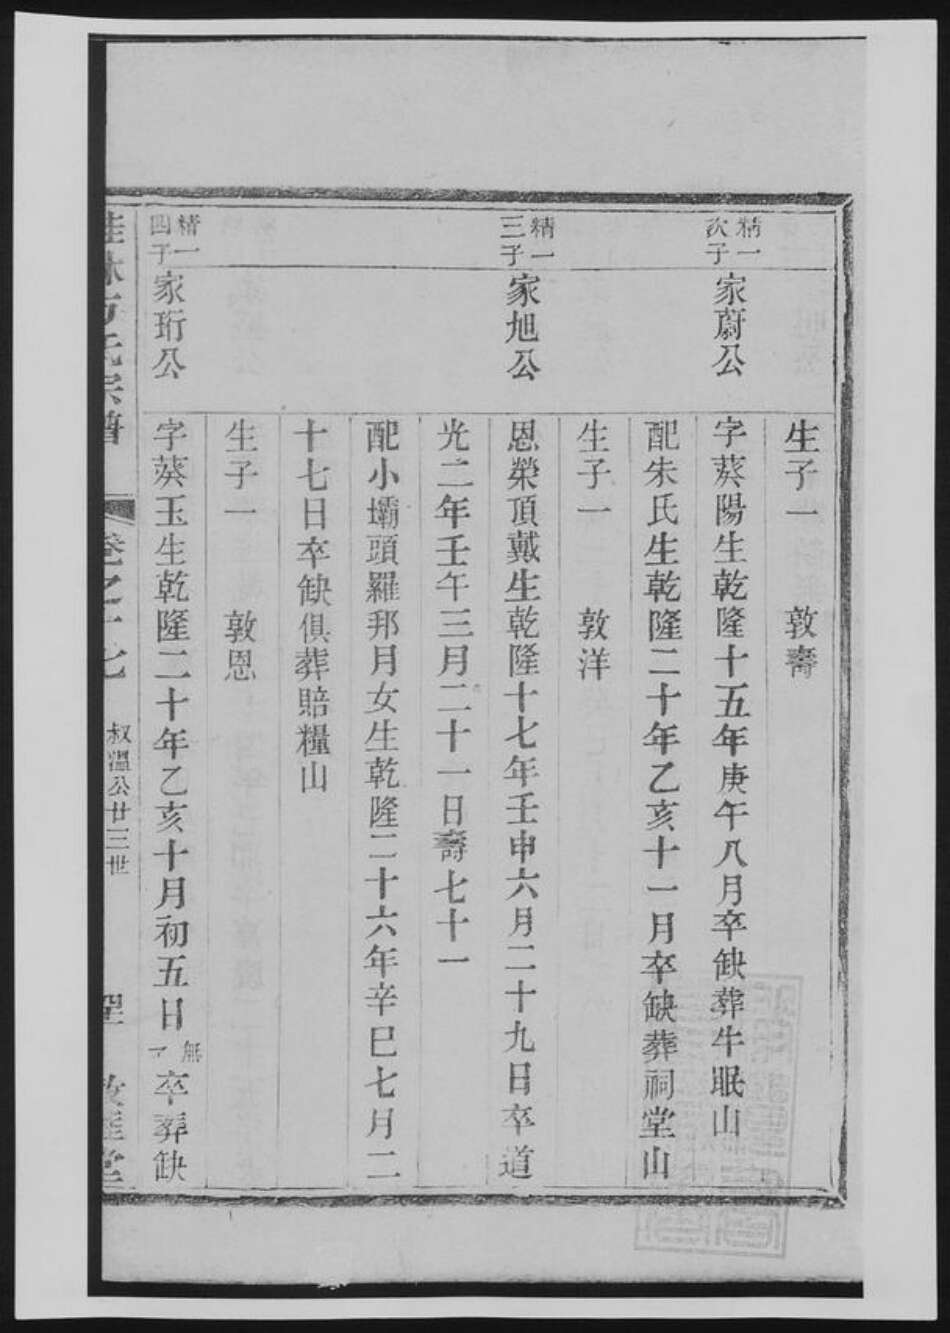 生子一 敦壽
精一次子 家蔚公 字葵陽生乾隆十五年庚午八月卒缺葬牛眠山
配朱氏生乾隆二十年乙亥十一月卒缺葬祠堂山
生子一 敦洋
精一三子 家旭公 恩榮頂戴生乾隆十七年壬申六月二十九日卒道
光二年壬午三月二十一日壽七十一
配小壩頭羅邦月女生乾隆二十六年辛巳七月二
十七日卒缺俱葬賠糧山
生子一 敦恩
精一四子 家珩公 字葵玉生乾隆二十年乙亥十月初五日無子卒葬缺
方氏宗譜 卷之十七 叔溫公廿三世 堂